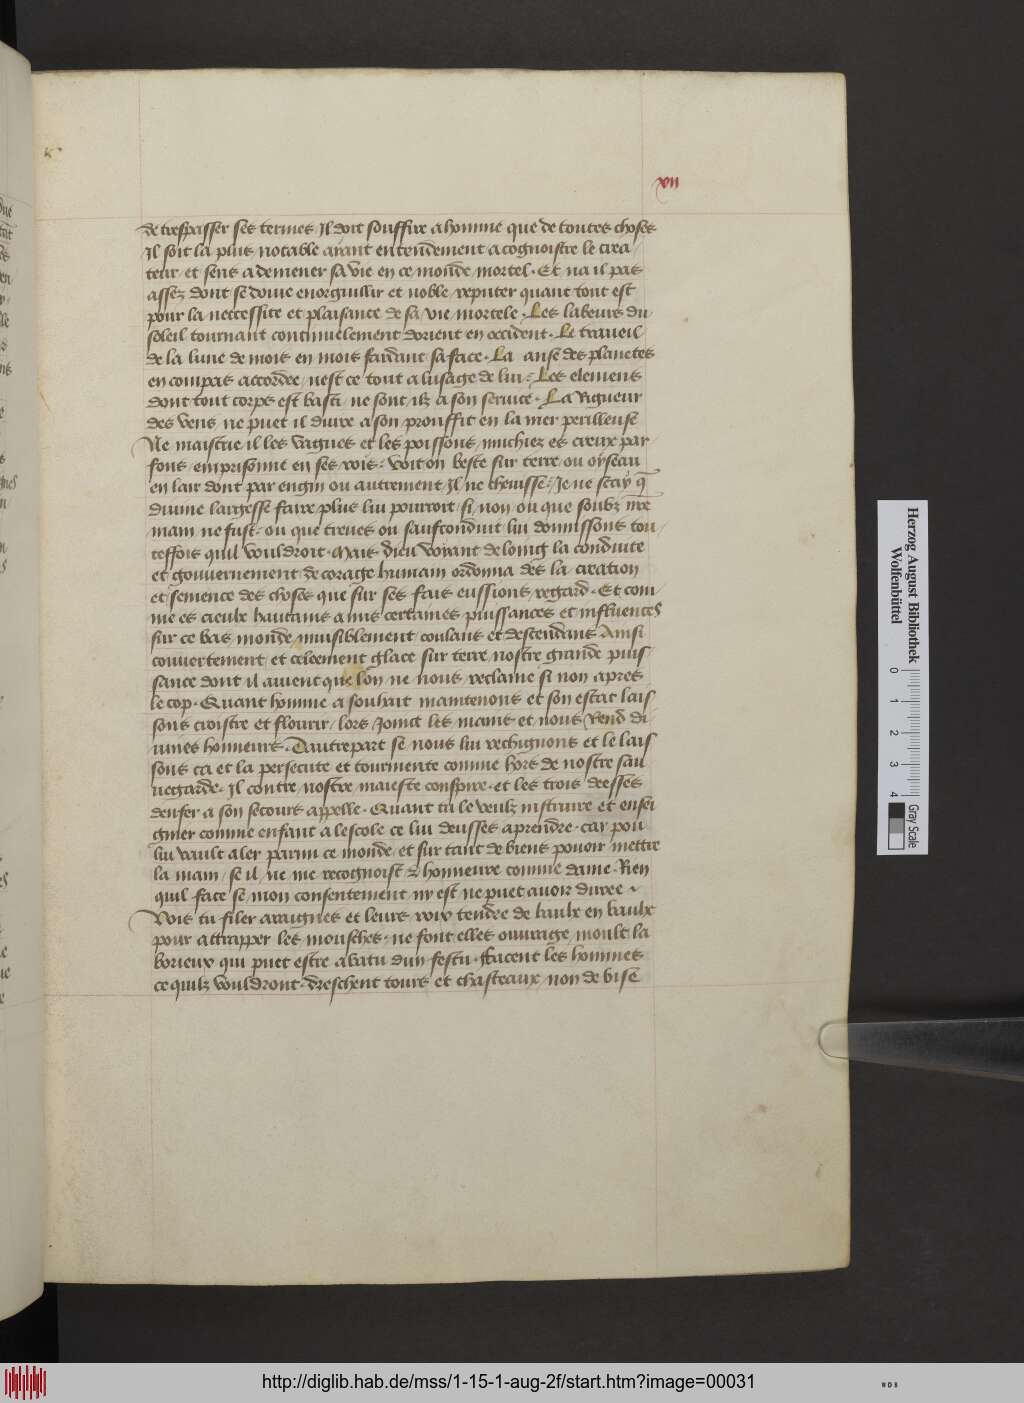 xvii
de trespasser ses termes Il doit souffire a homme que de toutes choses
Il soit la plus notable aiant entendement a cognoistre le crea
teur / et sens a demener sa vie en ce monde mortel · Et na il pas
assez dont se doiue enorguillir et noble / reputer quant tout est
pour la neccessite et plaisance de sa vie mortele · Les labeurs du
soleil tournant continuelement dorient en occident · Le traueil
de la lune de mois en mois fardant sa face · La anse des planetes
en compas accordee / nest ce tout a lusage de lui · Les elemens
dont tout corps est basti / ne sont ilz a son seruice · La Rigueur
des vens ne puet il duire a son prouffit en la mer perilleuse
Ne maistrie il les vagues et les poissons muchiez es creux par
fons emprisonne en ses rois · voit on beste sur terre / ou oyseau
en lair dont par engin ou autrement Il ne cheuisse · Je ne scay q̄
diuine largesse faire plus lui pourroit / si non / ou que soubz nr̄e
main ne fust · ou que treues ou saufconduit lui donnissons tou
teffois quil vouldroit · Mais dieu voyant de loing la conduite
et gouuernement de corage humain ordonna des la creation
et semence des choses que sur ses fais eussions regard · Et com
me es cieulx haultains a mis certaines puissances et influences
sur ce bas monde / inuisiblement coulans et descendans Ainsi
couuertement et celeement glace sur terre nostre grande puis
sance dont il auient que lon ne nous reclaime si non apres
le cop · Quant homme a souhait maintenons et son estat lais
sons croistre et flourir / lors joinct les mains et nous Rend di
uines honneurs · Dautrepart se nous lui rechignons et le lais
sons ca et la persecute et tourmente comme hors de nostre sau
uegarde · Il contre nostre maieste conspire · et les trois deesses
denfer a son secours appelle · Quant tu le veulz instruire et ensei
gnier comme enfant a lescole ce lui deusses aprendre · car pou
lui vault aler parmi ce monde / et sur tant de biens pouoir mettre
la main / se il ne me recognoist & honneure comme dame · Rien
quil face se mon consentement ny est ne puet auoir duree
Vois tu filer araignes et leurs roix tendre de baulx en baulx
pour attrapper les mousches · ne font elles ouurage moult la
borieux qui puet estre abatu dun festu · ffacent les hommes
ce quilz vouldront · dreschent tours et chasteaux / non de bise
Herzog August Bibliothek
Wolfenbüttel
0 1 2 3 4
Gray Scale
http://diglib.hab.de/mss/1-15-1-aug-2f/start.htm?image=00031
WDB